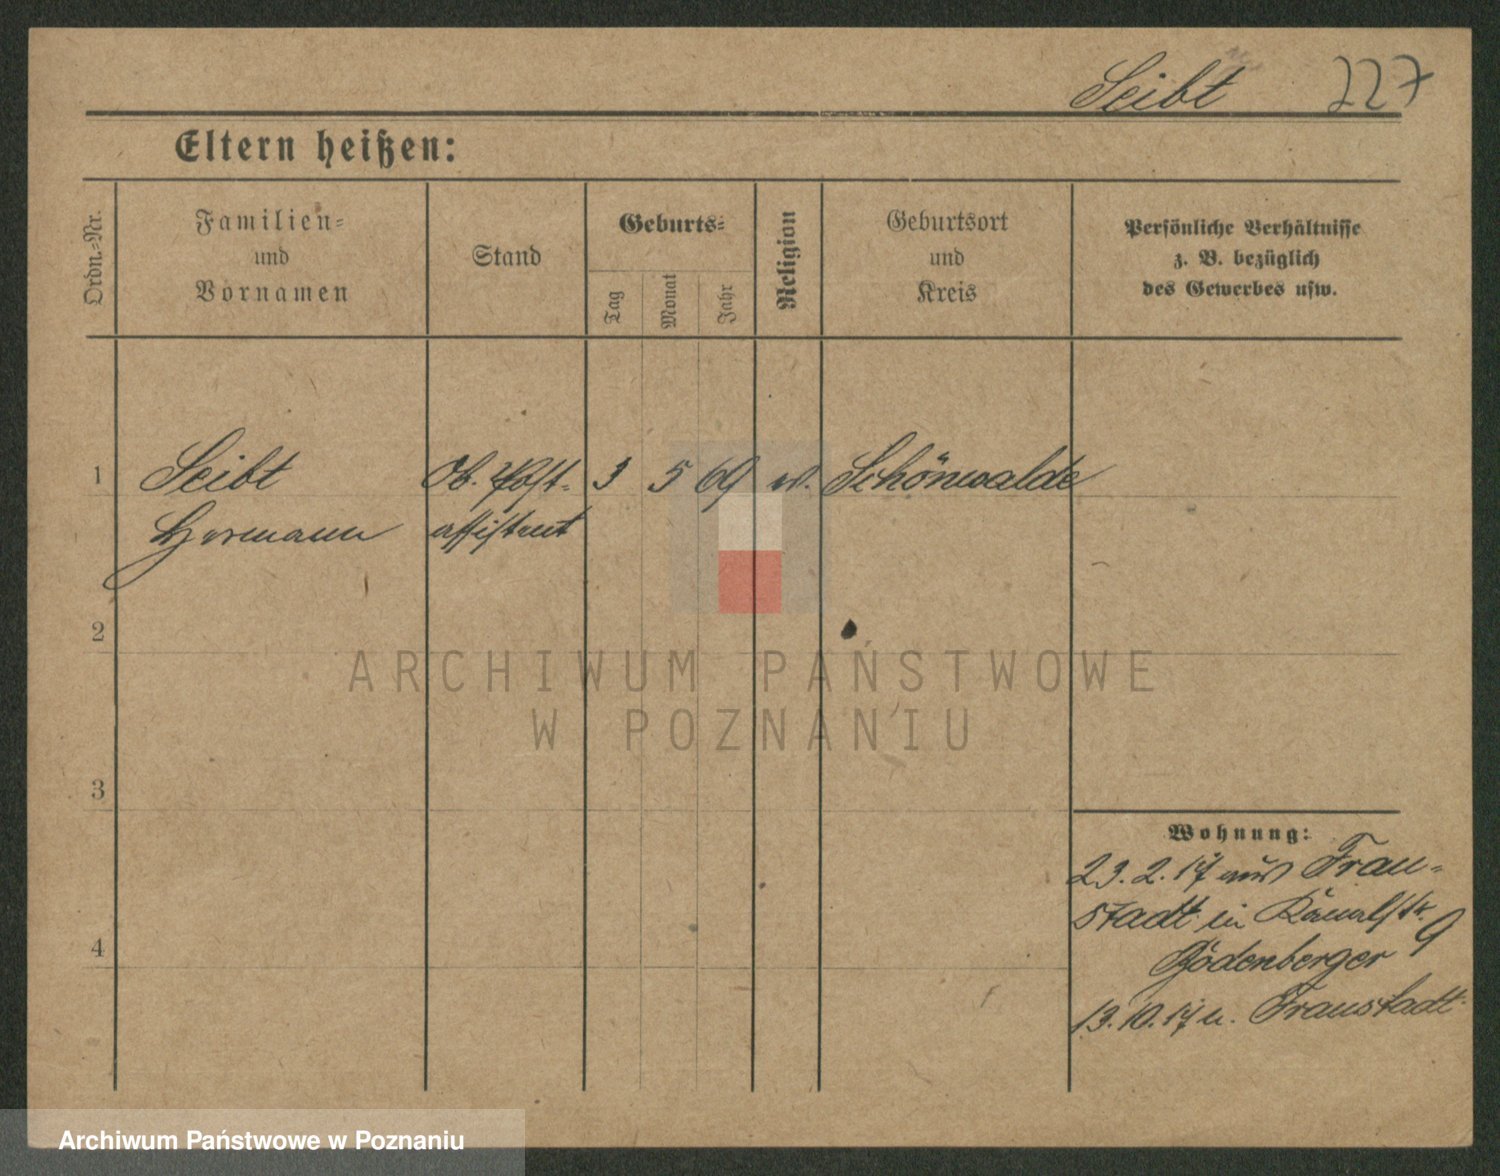 Seibt 227
Eltern heißen:
Ordn.-Nr.
Familien-
und
Vornamen
Stand
Geburts-
Tag
Monat
Jahr
Religion
Geburtsort
und
Kreis
Persönliche Verhältnisse
z. B. bezüglich
des Gewerbes usw.
1 Seibt Ob. Post- 3 5 69 ev. Schönwalde
Hermann assistent
2
3
4
Wohnung:
23.2.17 aus Frau-
stadt in Kanalstr. 9
Bodenberger
13.10.17 n. Fraustadt
ARCHIWUM PAŃSTWOWE
W POZNANIU
Archiwum Państwowe w Poznaniu